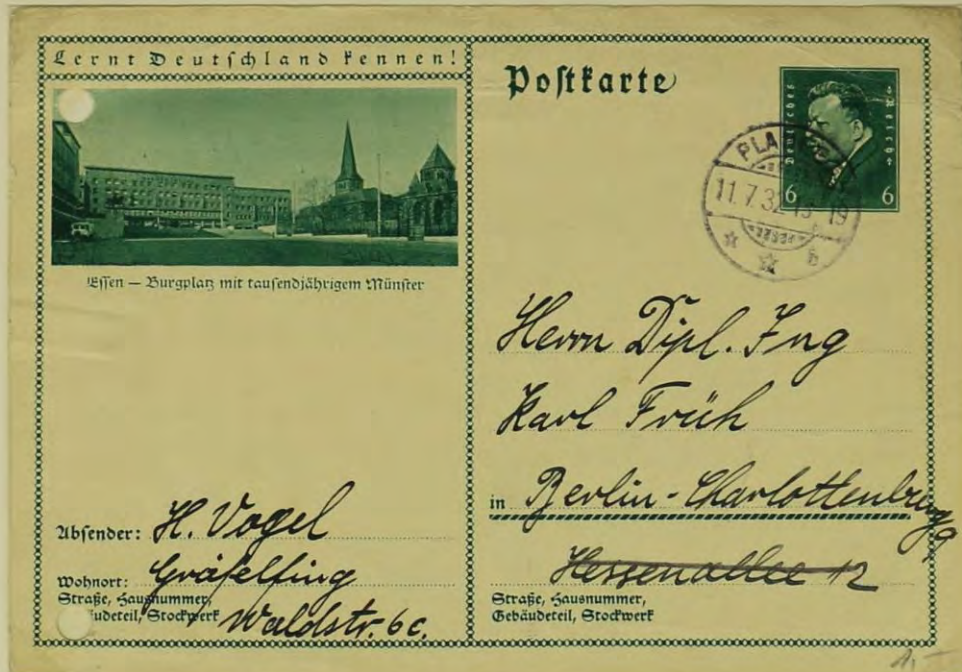 Lernt Deutschland kennen!
Essen — Burgplatz mit tausendjährigem Münster
Absender: H. Vogel
Wohnort: Gräfelfing
Straße, Hausnummer,
Gebäudeteil, Stockwerk Waldstr. 6c.
Postkarte
Deutsches Reich
6 6
11.7.32
19
b
Herrn Dipl. Ing
Karl Früh
in Berlin-Charlottenburg 9
Hessenallee 12
Straße, Hausnummer,
Gebäudeteil, Stockwerk